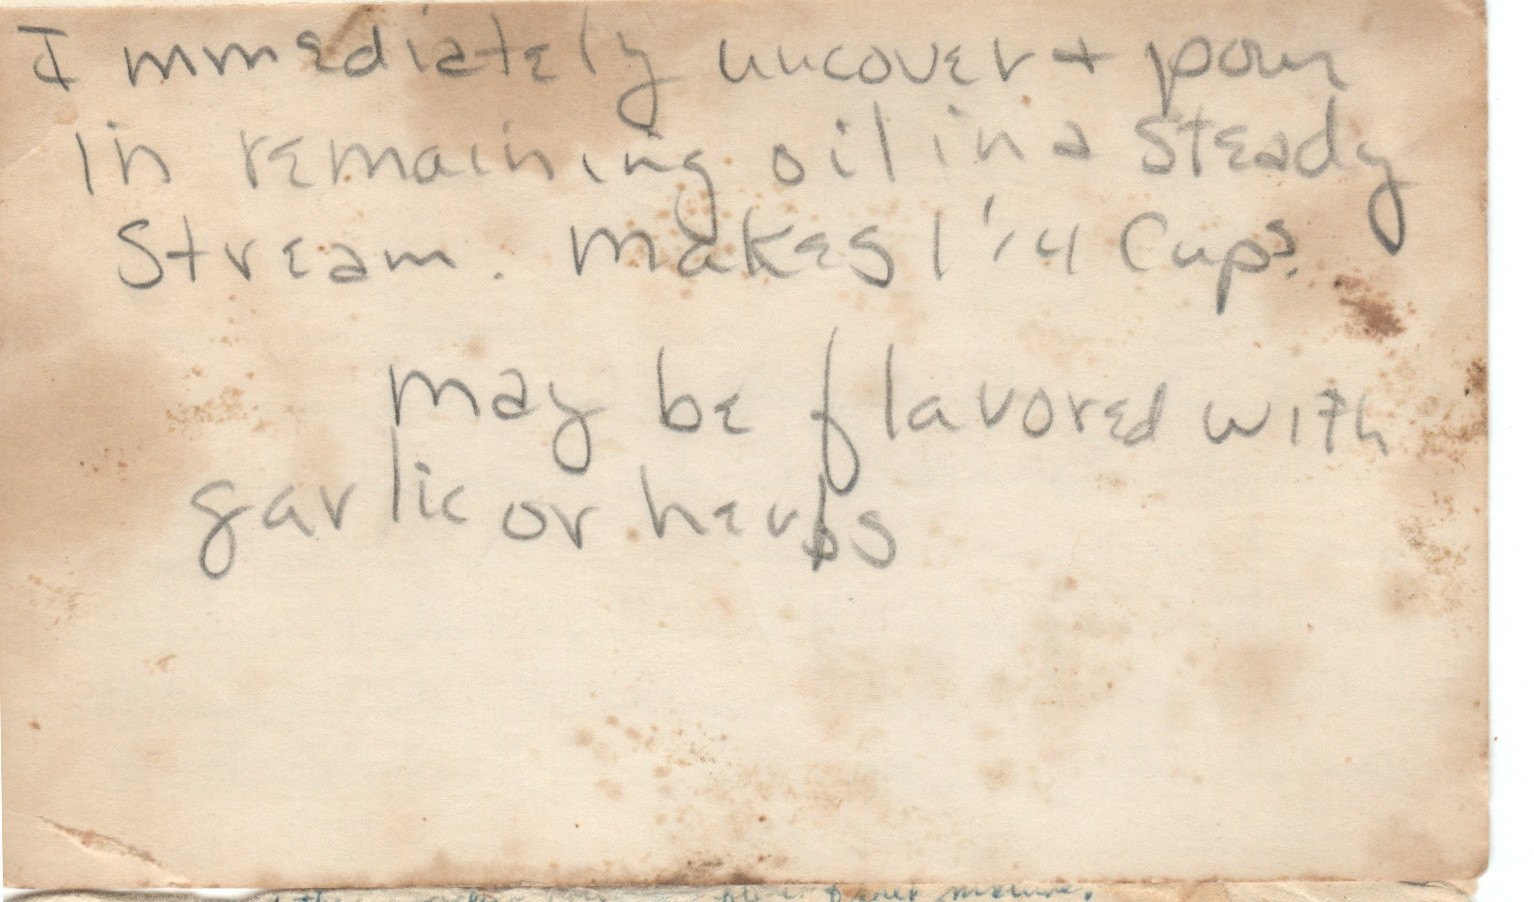 Immediately uncover + pour
in remaining oil in a steady
stream. Makes 1 1/4 Cups.
may be flavored with
garlic or herbs